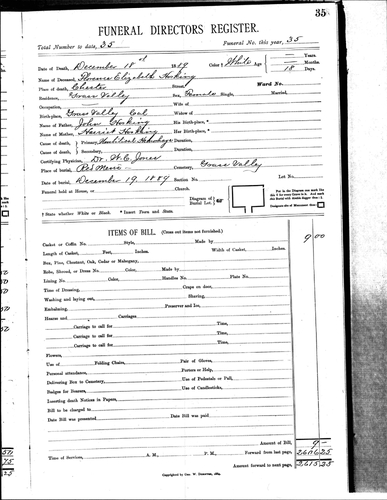 35
FUNERAL DIRECTORS REGISTER.
Total Number to date, 35 Funeral No. this year, 35
Date of Death, December 18th 1889 Color † White Age — Years.
— Months.
Name of Deceased, Florence Elizabeth Hosking 18 Days.
Place of death, Chester Street. Ward No.
Residence, Grass Valley Sex, Female Single, Married,
Occupation, Wife of
Birth-place, Grass Valley Cal Widow of
Name of Father, John Hosking His Birth-place, *
Name of Mother, Harriet Hosking Her Birth-place, *
Cause of Death: Primary, Duration,
Cause of death: Secondary, Duration,
Certifying Physician, Dr. W. C. Jones
Place of burial, Cemetery, Grass Valley
Date of burial, December 19. 1889 Section No. Lot No.
Funeral held at Home, or Church.
Diagram of Burial Lot,
† State whether White or Black. * Insert Town and State.
ITEMS OF BILL. (Cross out items not furnished.)
9 00
Casket or Coffin No. Style, Made by
Size of Casket, Length, Feet, Inches. Width of Casket, Inches.
Box, Pine, Chestnut, Oak, Cedar or Mahogany,
Robe, Shroud, or Dress No. Color, Made by
Lining No. Color, Handles No. Plate No.
Time of Dressing, Crape on door,
Washing and laying out, Shaving,
Embalming, Preserver and Ice,
Hearse and Carriages
Carriage to call for Time,
Carriage to call for Time,
Carriage to call for Time,
Carriage to call for Time,
Flowers,
Use of Folding Chairs, Pair of Gloves,
Personal attendance, Porters or Help,
Delivering Box to Cemetery, Use of Pedestals or Pall,
Badges for Bearers, Use of Candlesticks,
Inserting death Notices in Papers,
Bill to be charged to
Date Bill was presented Date Bill was paid
Amount of Bill, 9 —
Time of Services, A. M., P. M. Forward from last page, 2606 25
Amount forward to next page, 2615 25